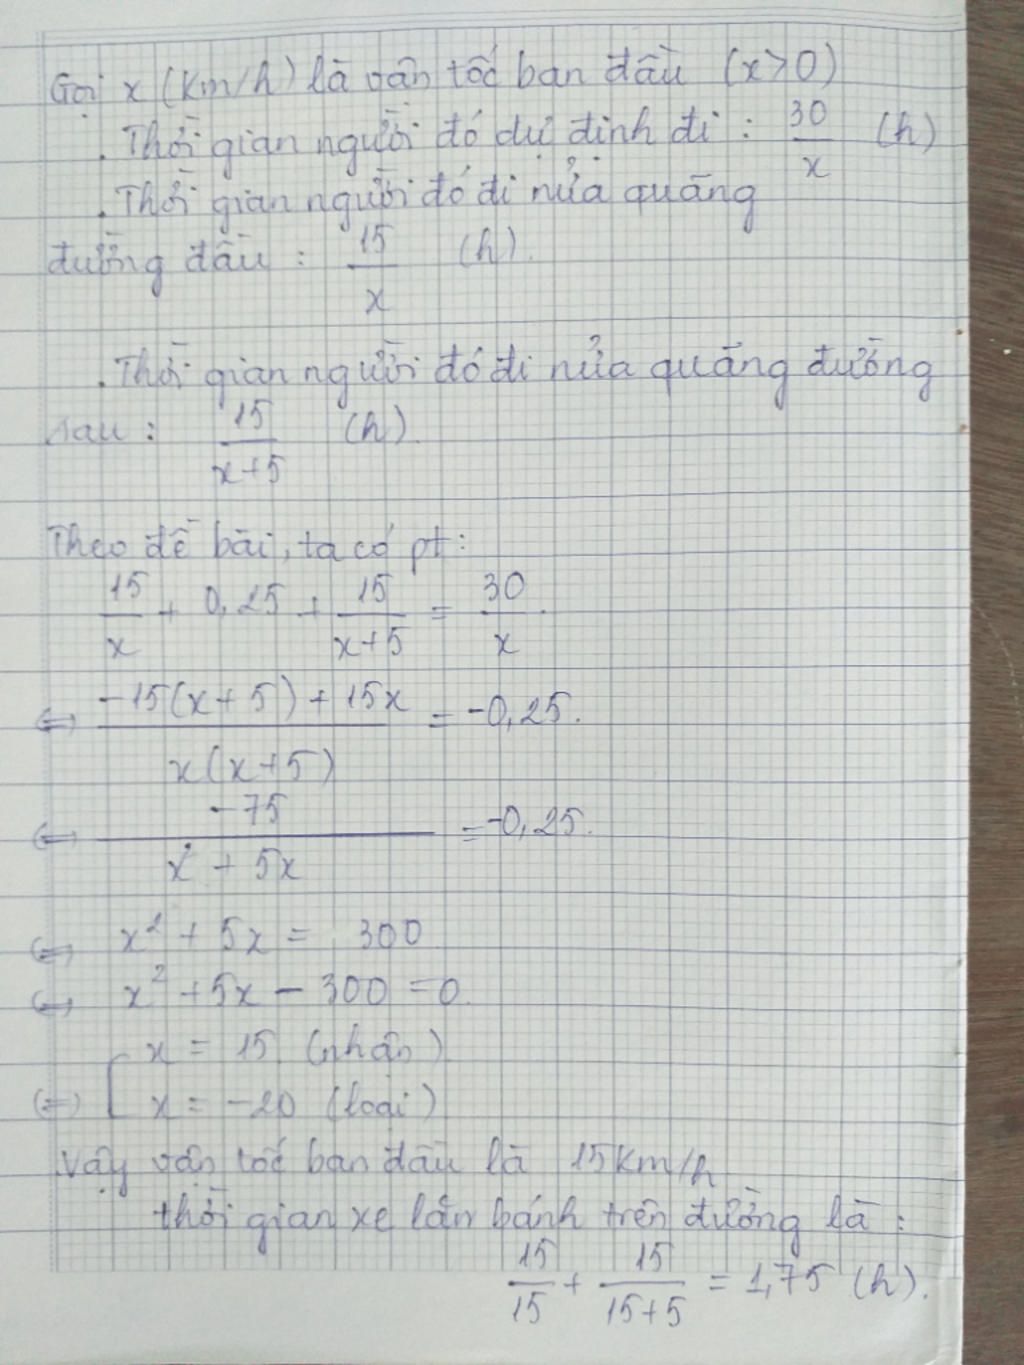 Gọi x (km/h) là vận tốc ban đầu (x>0)
. Thời gian người đó dự định đi : 30/x (h)
. Thời gian người đó đi nửa quãng
đường đầu : 15/x (h).
. Thời gian người đó đi nửa quãng đường
sau : 15/(x+5) (h).
Theo đề bài, ta có pt:
15/x + 0,25 + 15/(x+5) = 30/x.
⇔ (-15(x+5)+15x)/(x(x+5)) = -0,25.
⇔ -75/(x² + 5x) = -0,25.
⇔ x² + 5x = 300
⇔ x² + 5x - 300 = 0.
⇔ [ x = 15. (nhận)
x = -20 (loại)
Vậy vận tốc ban đầu là 15km/h
thời gian xe lăn bánh trên đường là :
15/15 + 15/(15+5) = 1,75 (h).